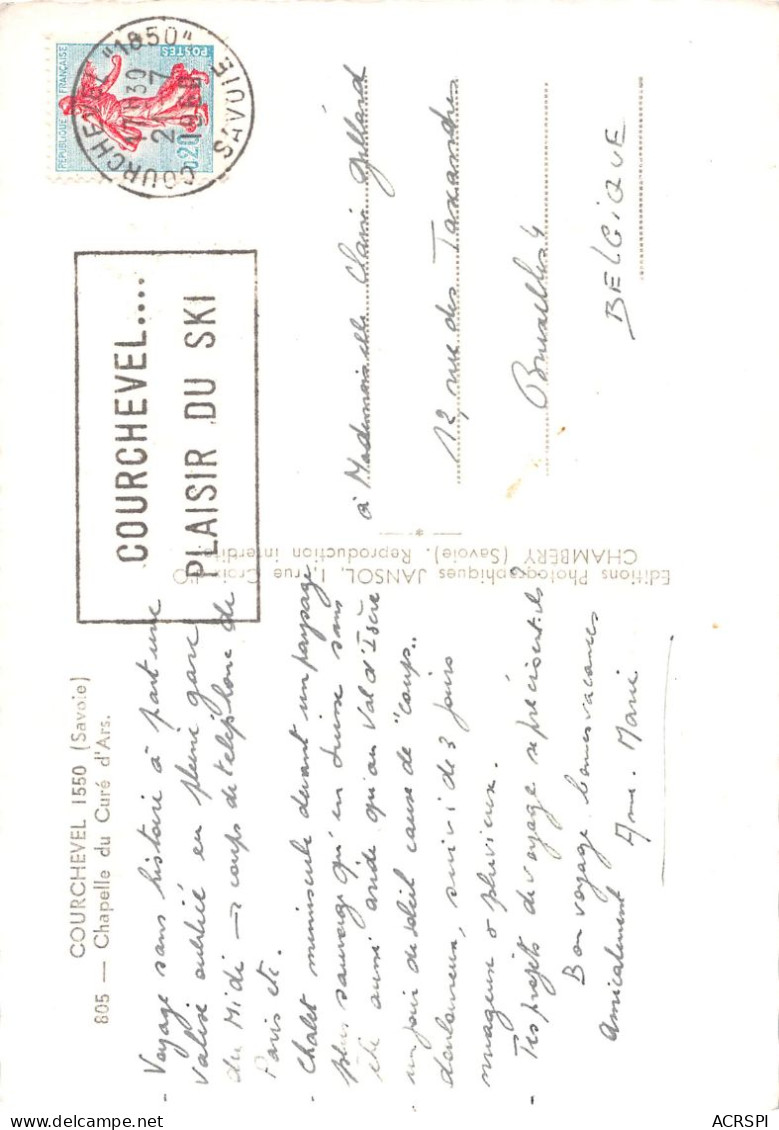 COURCHEVEL 1550 (Savoie)
805 — Chapelle du Curé d'Ars.
- Voyage sans histoire à part une
valise oubliée en pleine gare
du Midi → coups de téléphone de
Paris etc.
- Chalet minuscule devant un paysage
plus sauvage qu'en Suisse sans
être aussi aride qu'au Val d'Isère
un jour de soleil cause de "coups"..
douloureux, suivi de 3 jours
nuageux o pluvieux.
- Tes projets de voyage se précisent-ils?
Bon voyage bonnes vacances
Amicalement Anne-Marie
Editions Photographiques JANSOL, 1, rue Croix-d'O
CHAMBÉRY (Savoie). Reproduction interdite
REPUBLIQUE FRANÇAISE
POSTES
0,20
COURCHEVEL "1850"
17H30
21-7
SAVOIE
COURCHEVEL....
PLAISIR DU SKI
à Mademoiselle Claire Gillard
12, rue des Taxandres
Bruxelles 4
BELGIQUE
ACRSPI